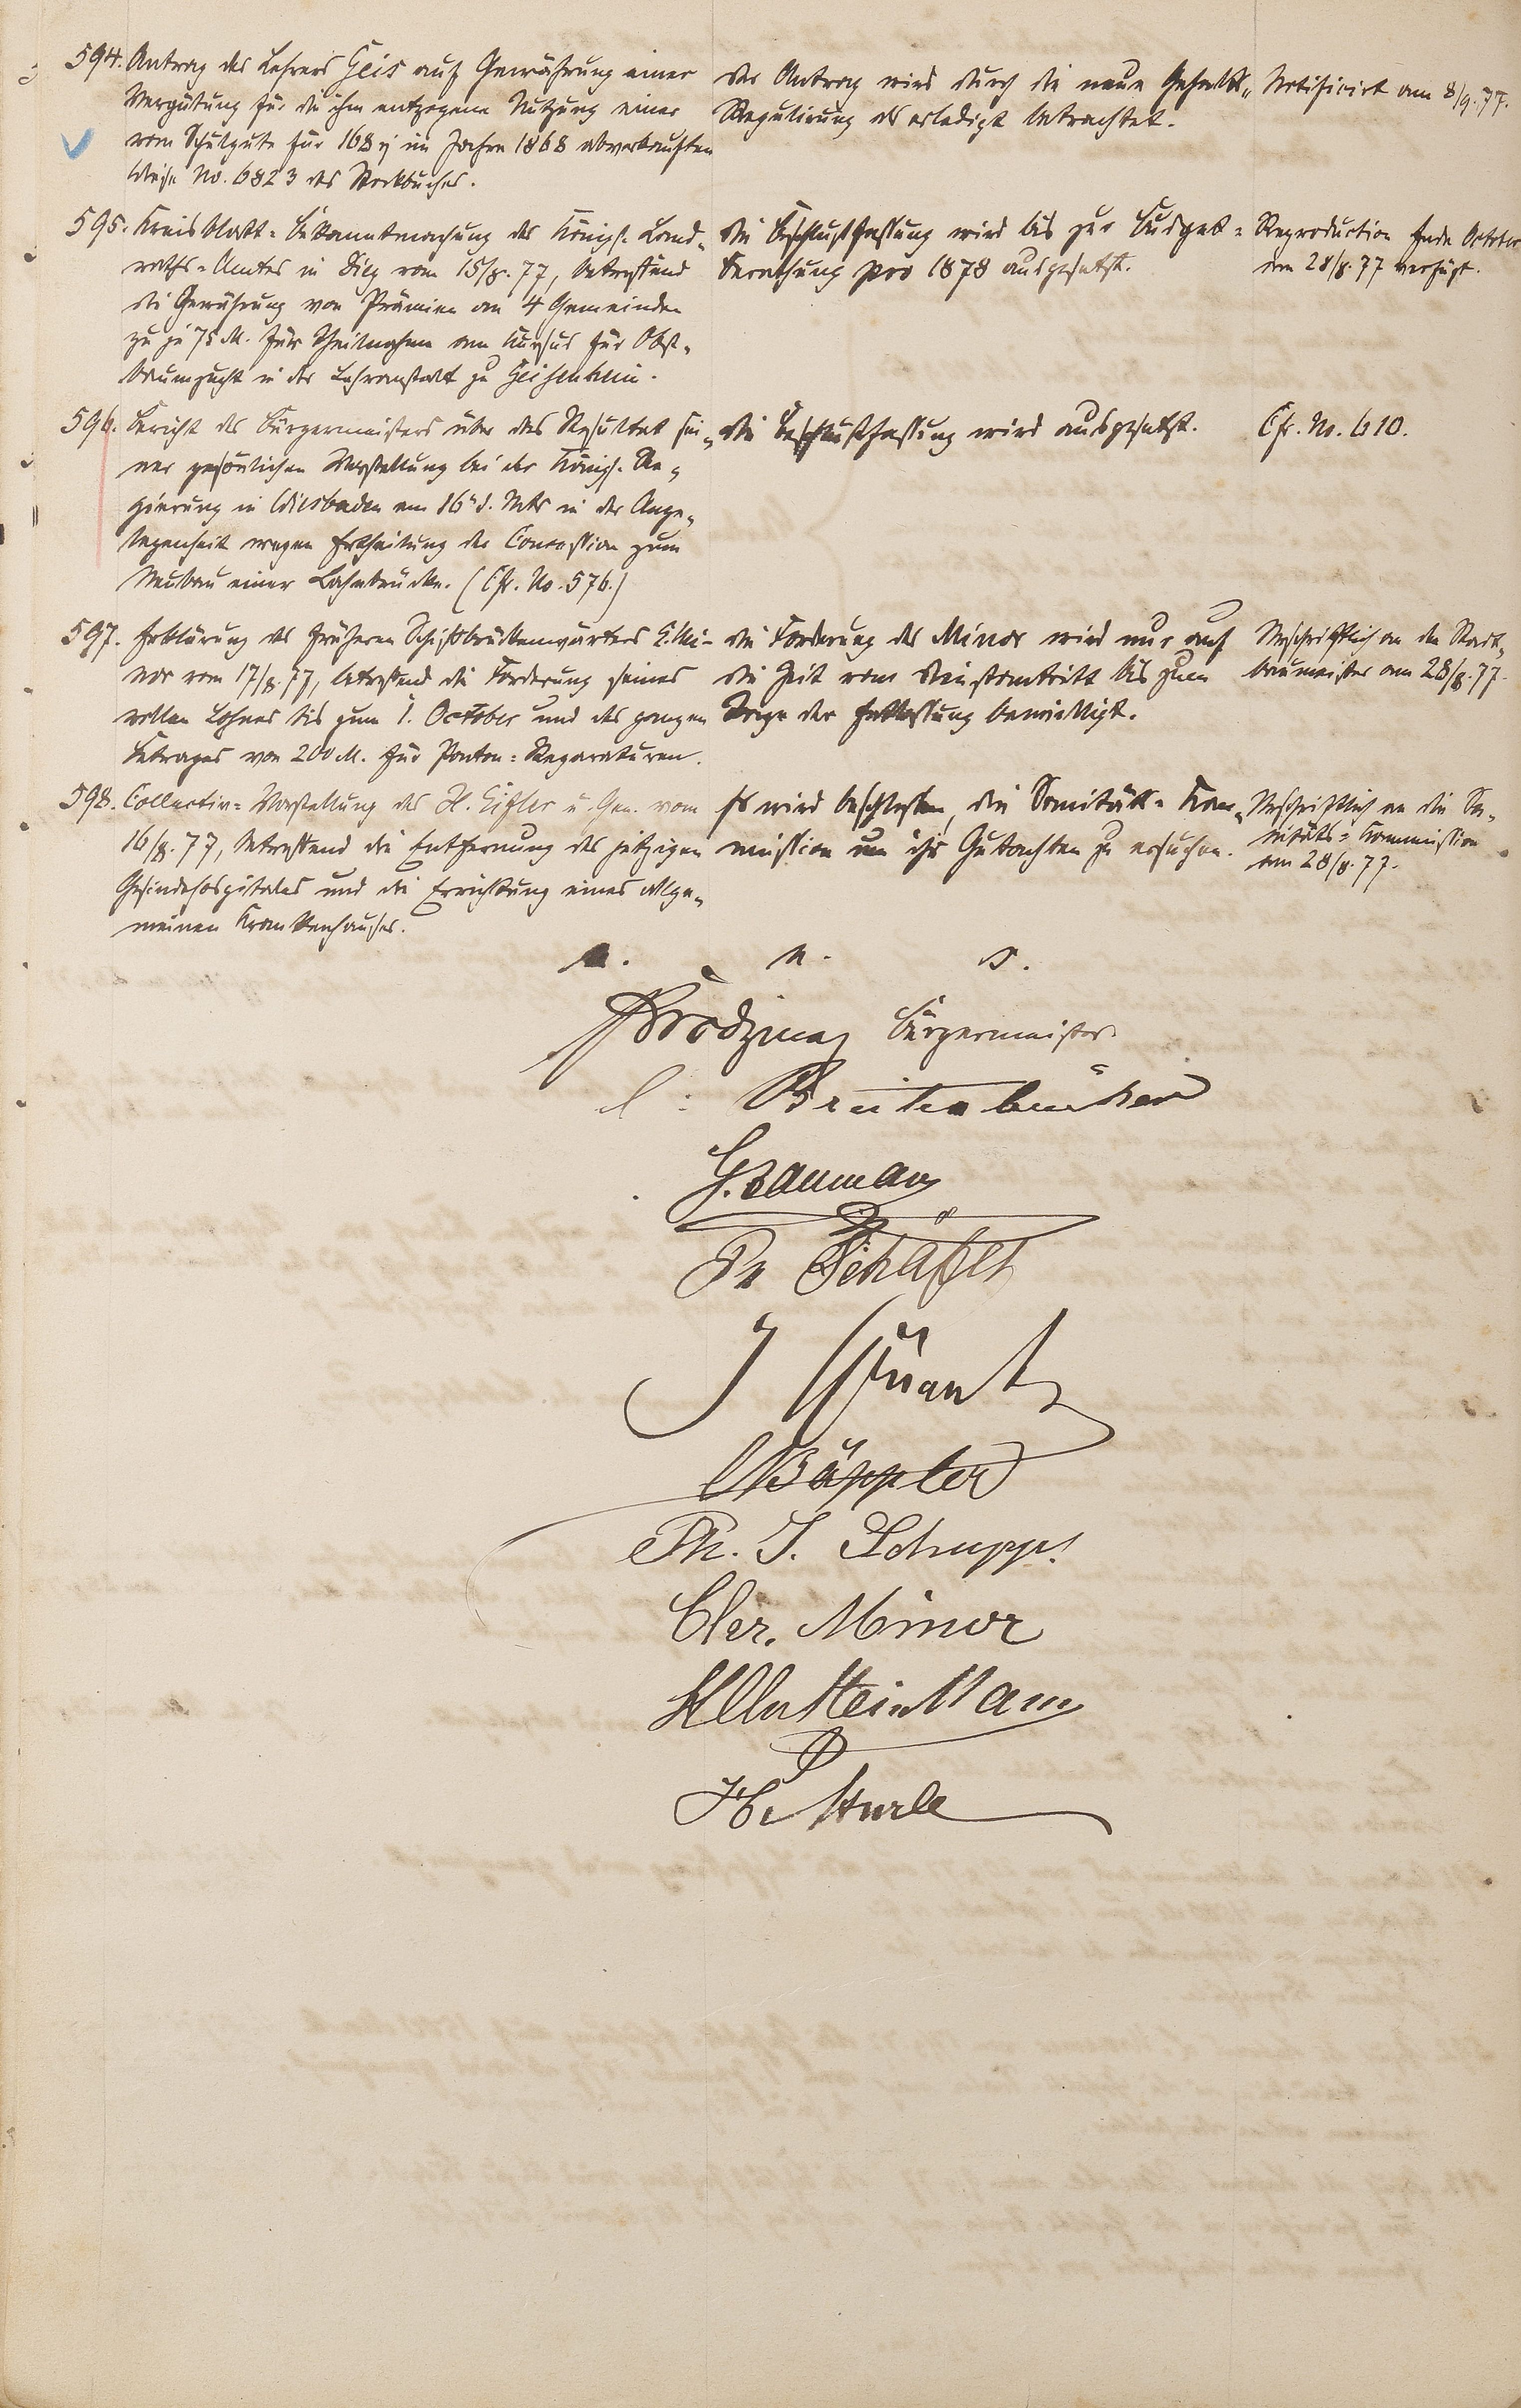 594. Antrag des Lehrers Geis auf Gewährung einer
Vergütung für die ihm entzogene Nutzung einer
vom Schulgute für 168 im Jahre 1868 abverkauften
Wiese No. 6823 des Stockbuches.
Der Antrag wird durch die neue Gehalts-
Regulirung als erledigt betrachtet.
Notificirt am 8/9. 77.
595. Kreisblatt-Bekanntmachung des Königl. Land-
raths-Amtes in Diez vom 15/8. 77, betreffend
die Gewährung von Prämien an 4 Gemeinden
zu je 75 M. für Theilnahme am Kursus für Obst-
baumzucht in der Lehranstalt zu Geisenheim.
Die Beschlußfassung wird bis zur Budget-
berathung pro 1878 ausgesetzt.
Reproduction Ende October
am 28/8. 77 verfügt.
596. Bericht des Bürgermeisters über das Resultat sei-
ner persönlichen Vorstellung bei der Königl. Re-
gierung in Wiesbaden am 16. d. Mts in der Ange-
legenheit wegen Ertheilung der Concession zum
Neubau einer Lahnbrücke. (Cfr. No. 576.)
Die Beschlußfassung wird ausgesetzt.
Cfr. No. 610.
597. Erklärung des früheren Schiffbrückenwärters E. Mi-
nor vom 17/8. 77, betreffend die Forderung seines
vollen Lohnes bis zum 1. October und des ganzen
Betrages von 200 M. für Ponton-Reparaturen.
Die Forderung des Minor wird nur auf
die Zeit vom Dienstantritt bis zum
Tage der Entlassung bewilligt.
Urschriftlich an den Stadt-
baumeister am 28/8. 77.
598. Collectiv-Vorstellung des H. u. Gen. vom
16/8. 77, betreffend die Entfernung des jetzigen
Gesindehospitales und die Errichtung eines allge-
meinen Krankenhauses.
Es wird beschlossen, die Sanitäts-Kom-
mission um ihr Gutachten zu ersuchen.
Urschriftlich an die Sa-
nitäts-Kommission
am 28/8. 77.
a. u. s.
Bürgermeister.
G. Bauman
Dr Schäfer
Ph. J. Schupp.
Chr. Minor